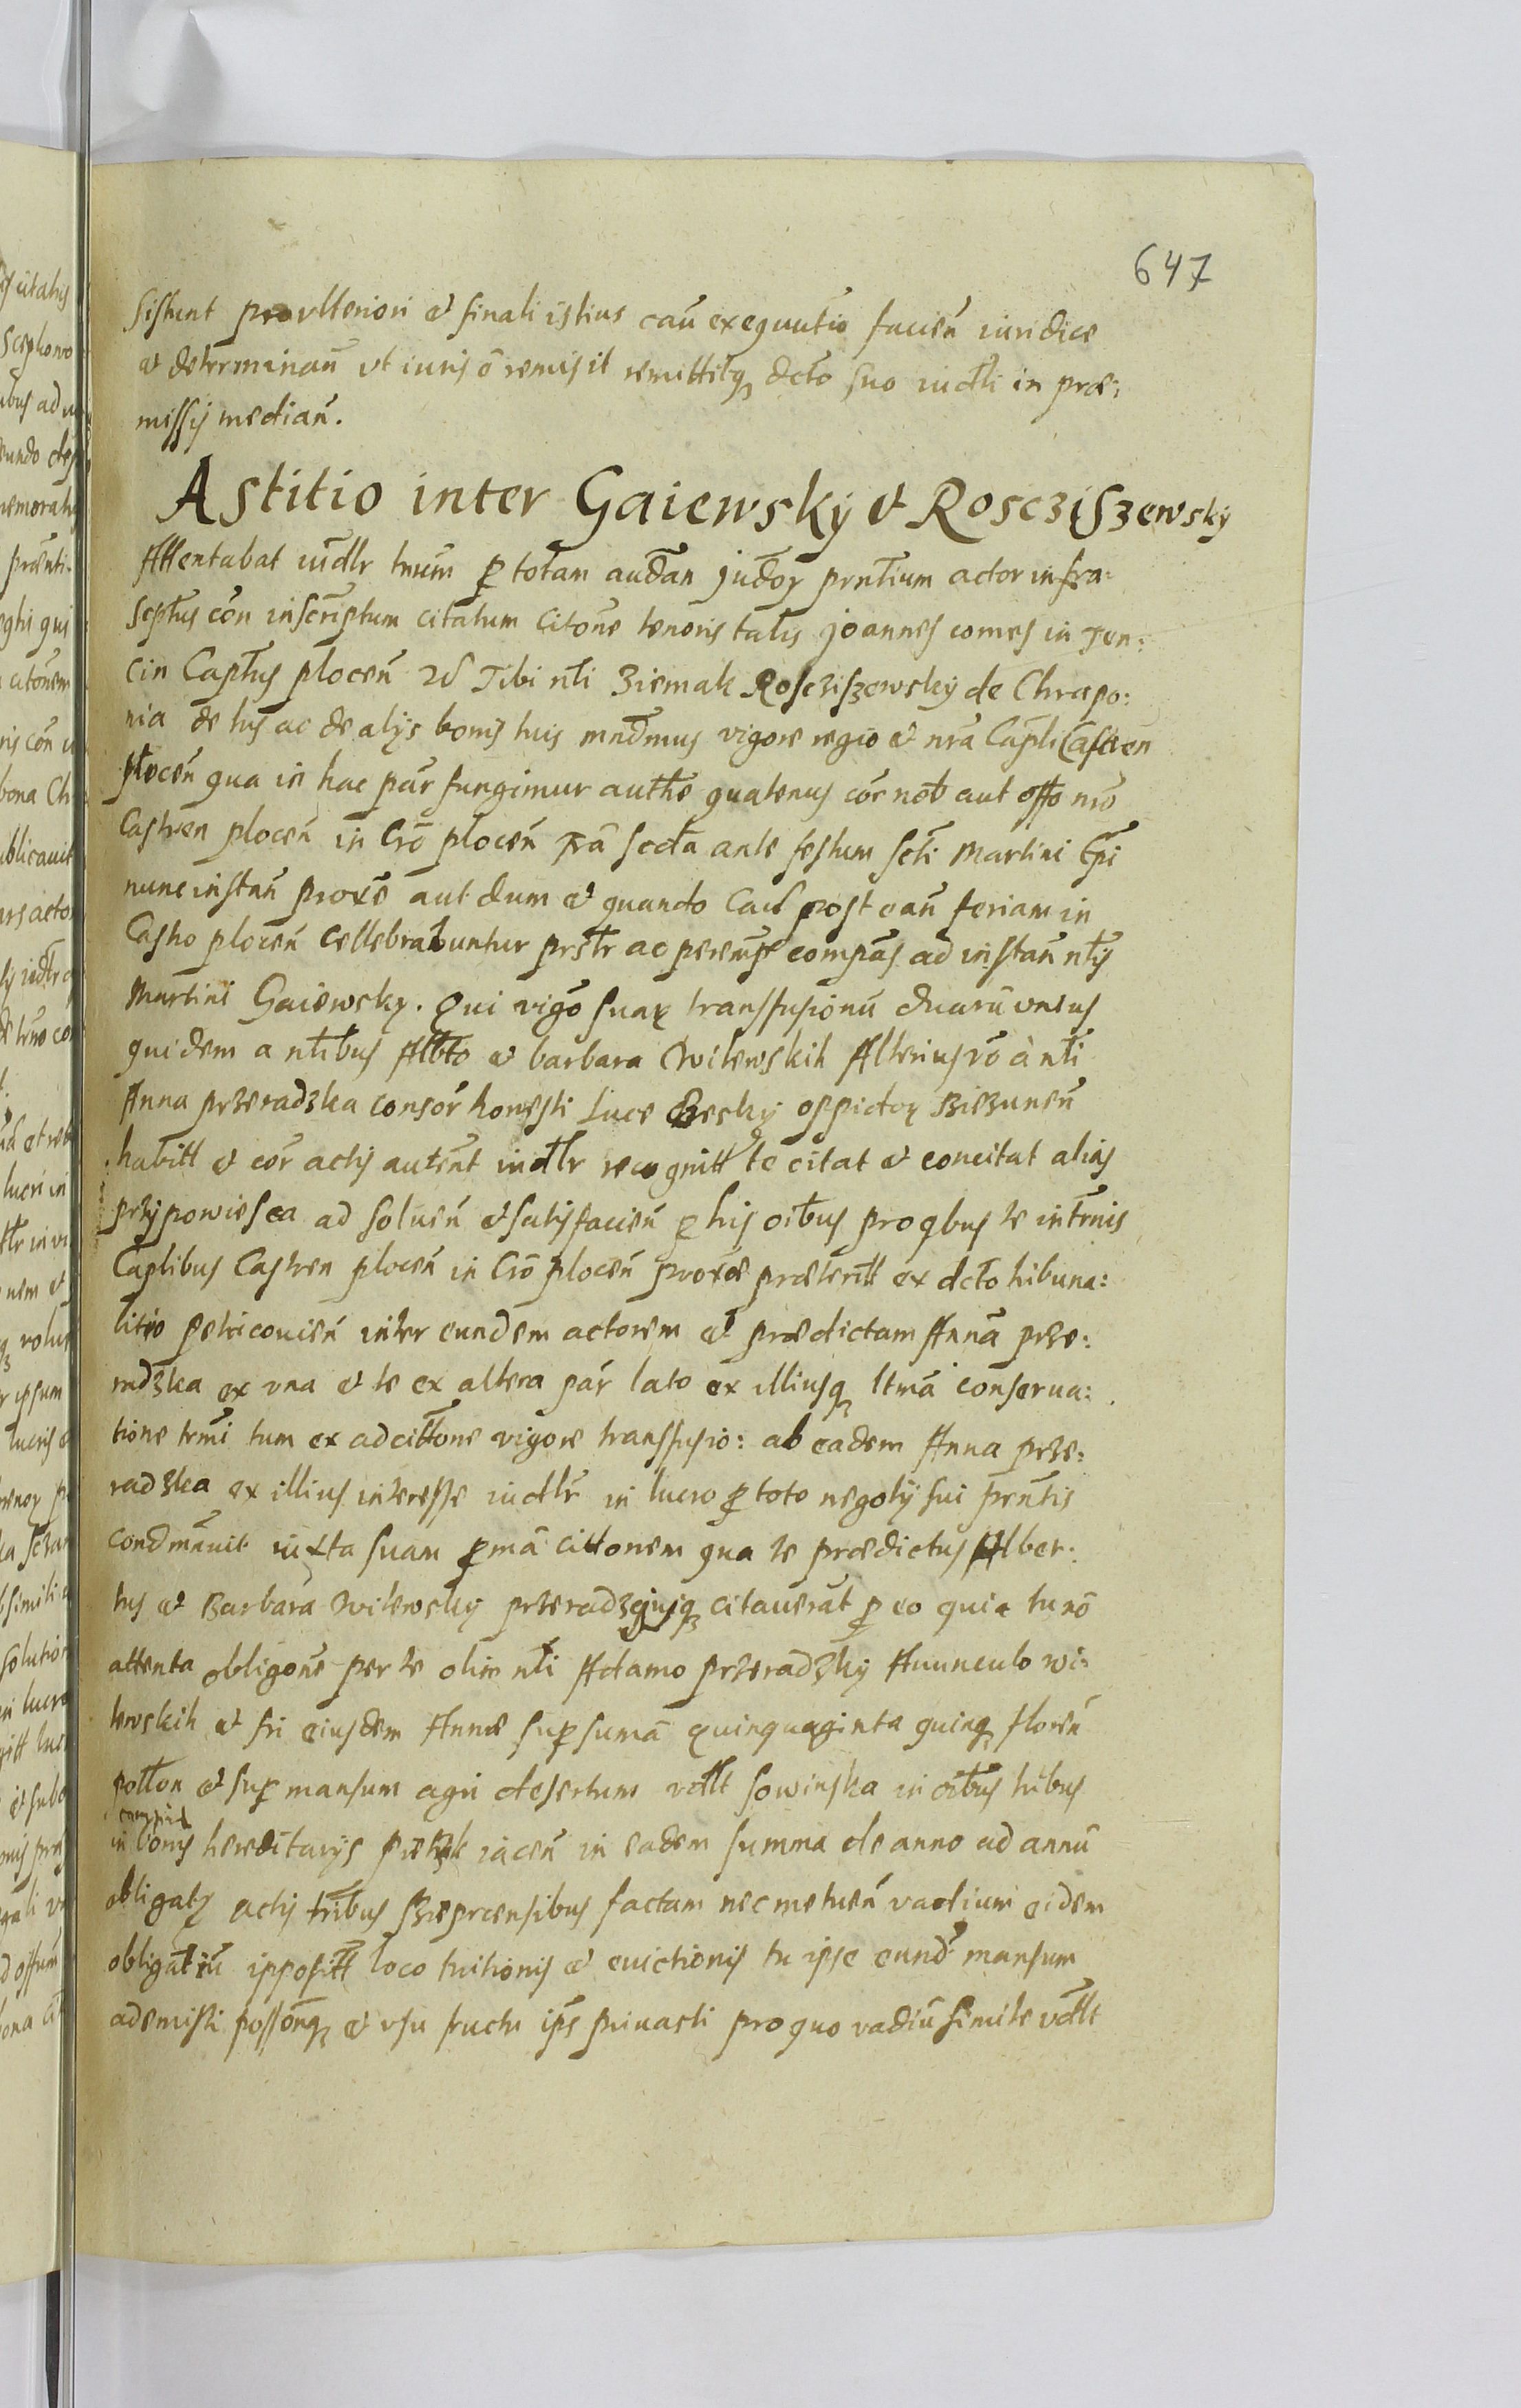 647
sistunt pro vlteriori et finali istius cau̅ exequutio facien̅ iuridice
et determinan̅ vt iuris e̅ remisit remittitq₃ dcto̅ suo iudtli in præ:
missis median̅.
Astitio inter Gaiewsky et Roscziszewsky
Attentabat iudlr tnum̅ p totam audan̅ judor prntium actor infra:
scptus con̅ inscriptum citatum citone̅ tenoris talis Joannes comes in Ten:
cin Captus plocen̅ Tibi nli Ziemak Rosciszewsky de Chrapo:
nia de his ac de alys bonis tuis mndmus vigore regio et nra̅ Capli Castren
plocen̅ qua in hac par̅ fungimur authe quatenus cor̅ nob̅ aut offo nro̅
Castren plocen̅ in Cro̅ plocen̅ fra̅ scda̅ ante festum scti̅ Martini Epi̅
nunc instan̅ proxe̅ aut dum et quando Cau post ean̅ feriam in
Castro plocen̅ cellebrabuntur prstr ac peremp̅t compas̅ ad instan̅ nlis
Martini Gaiewsky. Qui vigo̅ suar transfusionu̅ duaru̅ vnius
quidem a nlibus Albto̅ et barbara Witewskih Alterius ro̅ à nli
Anna przeradzka consor̅ honesti Luce Besky oppidor Biezunen̅
habitt et cor̅ actis auten̅t iudtlr recognitt te citat et concitat alias
przypowiesca ad soluen̅ et satisfacien̅ p his oib̅us pro qbus te in trnis̅
Caplibus Castren plocen̅ in Cro̅ plocen̅ proxæ præteritt ex dcto̅ tribuna:
litio petricouien̅ inter eundem actorem et prædictam Anna̅ prze:
radzka ex vna et te ex altera par̅ lato ex illiusq₃ ltma̅ conserua:
tione trmi̅ tum ex adcittone vigore transfusio: ab eadem Anna prze:
radzka ex illius interesse iudtlr̅ in lucro p toto negoty sui pren̅tis
condmnauit iuxta suam pma̅ cittonem qua te prædictus Alber:
tus et Barbara Witewsky przeradzquisq₃ citauera̅t p eo quia tu no̅
attenta obligone̅ per te olim nli Adamo przeradzky Auunculo wi:
tewskih et fri eiusdem Annæ sup suma̅ quinquaginta quinq₃ floren̅
polton et sup mansum agri desertum vdllt sowinska in oib̅us tribus
campis
in bonis hereditarys pietrzk iacen̅ in eadem summa de anno ad annu̅
obligatz actis tribus Bieprcensibus factam nec metuen̅ vadium eidem
obligatiu̅ ippositt loco tuitionis et euictionis tu ipse eund̅ mansum
ademisti posson̅q₃ et vsu fructu ips̅ priuasti pro quo vadiu̅ simile vdllt